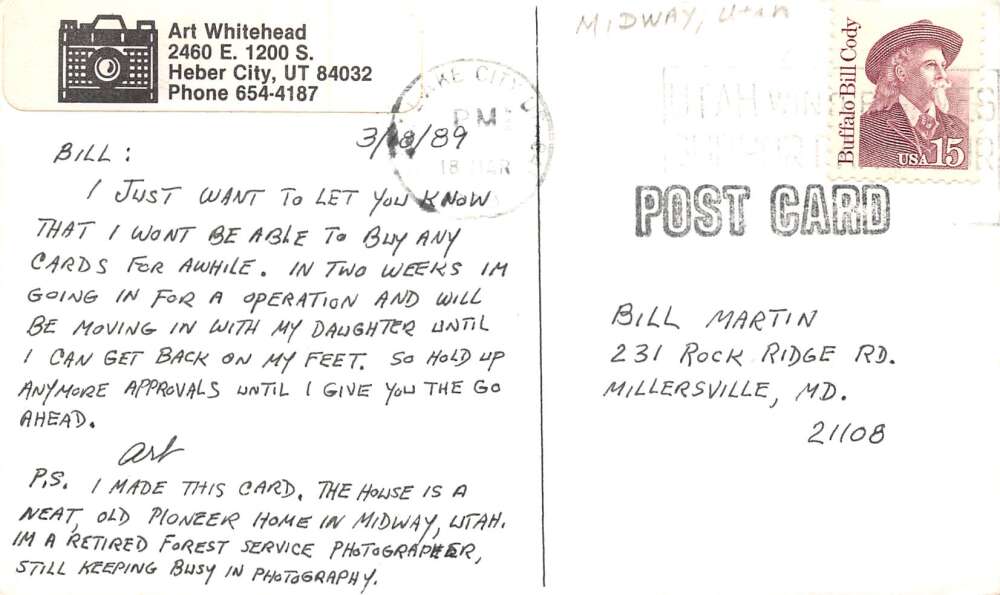 Art Whitehead
2460 E. 1200 S.
Heber City, UT 84032
Phone 654-4187
MIDWAY, Utah
Buffalo Bill Cody
USA 15
LAKE CITY
PM
18 MAR
UTAH
POST CARD
3/18/89
BILL:
I JUST WANT TO LET YOU KNOW
THAT I WONT BE ABLE TO BUY ANY
CARDS FOR AWHILE. IN TWO WEEKS IM
GOING IN FOR A OPERATION AND WILL
BE MOVING IN WITH MY DAUGHTER UNTIL
I CAN GET BACK ON MY FEET. SO HOLD UP
ANYMORE APPROVALS UNTIL I GIVE YOU THE GO
AHEAD.
Art
P.S. I MADE THIS CARD. THE HOUSE IS A
NEAT, OLD PIONEER HOME IN MIDWAY, UTAH.
IM A RETIRED FOREST SERVICE PHOTOGRAPHER,
STILL KEEPING BUSY IN PHOTOGRAPHY.
BILL MARTIN
231 ROCK RIDGE RD.
MILLERSVILLE, MD.
21108